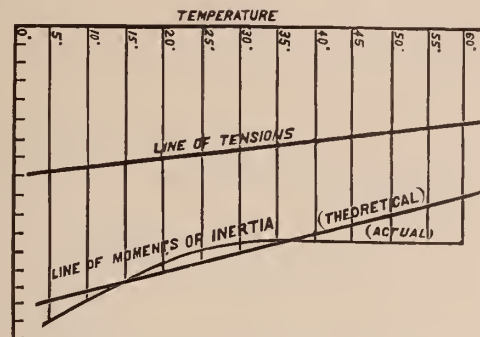 TEMPERATURE
0° 5° 10° 15° 20° 25° 30° 35° 40° 45 50° 55° 60°
LINE OF TENSIONS
LINE OF MOMENTS OF INERTIA
(THEORETICAL)
(ACTUAL)